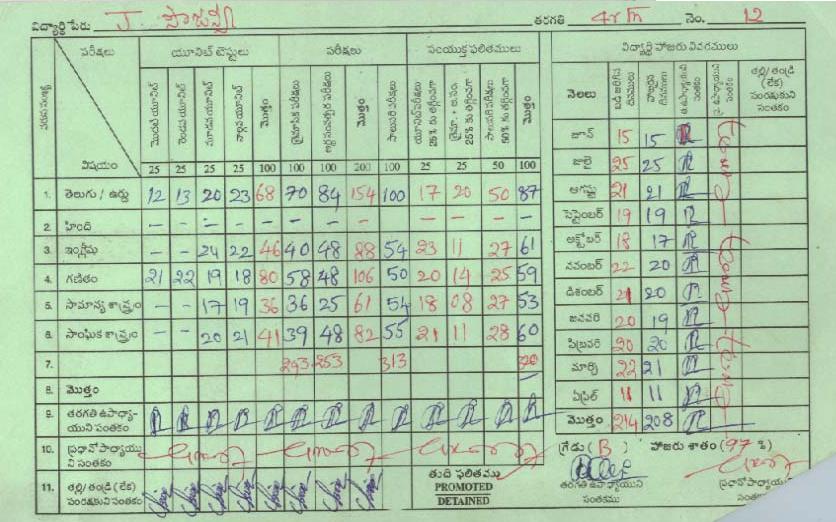 విద్యార్థి పేరు J. సాజన్సీ తరగతి 4వ సెం. 12
పరీక్షలు యూనిట్ టెస్టులు పరీక్షలు సంయుక్త ఫలితములు
వరుస సంఖ్య విషయం మొదటి యూనిట్ రెండవ యూనిట్ మూడవ యూనిట్ నాల్గవ యూనిట్ మొత్తం త్రైమాసిక పరీక్షలు అర్ధ సంవత్సర పరీక్షలు మొత్తం సాలుసరి పరీక్షలు యూనిట్ పరీక్షలు 25% కు తగ్గించగా త్రైమా. + అ.సం. 25% కు తగ్గించగా సాలుసరి పరీక్షలు 50% కు తగ్గించగా మొత్తం
25 25 25 25 100 100 100 200 100 25 25 50 100
1. తెలుగు / ఉర్దు 12 13 20 23 68 70 84 154 100 17 20 50 87
2. హింది - - - - - - - - - - - - -
3. ఇంగ్లీషు - - 24 22 46 40 48 88 54 23 11 27 61
4. గణితం 21 22 19 18 80 58 48 106 50 20 14 25 59
5. సామాన్య శాస్త్రం - - 17 19 36 36 25 61 54 18 08 27 53
6. సాంఘిక శాస్త్రం - - 20 21 41 39 48 82 55 21 11 28 60
7. 243 253 313 320
8. మొత్తం
9. తరగతి ఉపాధ్యా-
యుని సంతకం
10. ప్రధానోపాధ్యాయు
ని సంతకం
11. తల్లి/ తండ్రి (లేక)
సంరక్షకుని సంతకం
తుది ఫలితము
PROMOTED
DETAINED
విద్యార్థి హాజరు వివరములు
నెలలు బడి జరిగిన దినములు హాజరైన దినములు త. ఉపాధ్యాయుని సంతకం ప్ర. ఉపాధ్యాయుని సంతకం తల్లి/ తండ్రి (లేక) సంరక్షకుని సంతకం
జూన్ 15 15
జులై 25 25
ఆగష్టు 21 21
సెప్టెంబర్ 19 19
అక్టోబర్ 18 17
నవంబర్ 22 20
డిశంబర్ 21 20
జనవరి 20 19
ఫిబ్రవరి 20 20
మార్చి 22 21
ఏప్రిల్ 11 11
మొత్తం 214 208
గ్రేడు ( B ) హాజరు శాతం (97 %)
తరగతి ఉపాధ్యాయుని
సంతకము
ప్రధానోపాధ్యాయుని
సంతకం